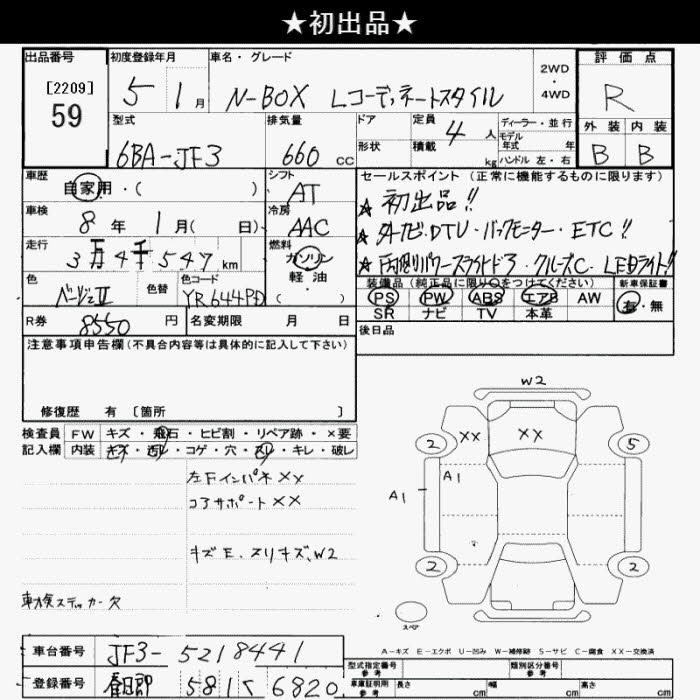 ★初出品★
出品番号 初度登録年月 車名・グレード 2WD・4WD 評価点
[2209]
59
5 1月 N-BOX Lコーディネートスタイル R
型式 排気量 ドア 定員 4人 ディーラー・並行 外装 内装
6BA-JF3 660cc 形状 積載 kg モデル年式 年 ハンドル 左・右 B B
車歴 自家用・( ) シフト AT セールスポイント (正常に機能するものに限ります)
車検 8年 1月( 日) 冷房 AAC ★初出品!!
走行 3万4千547km 燃料 ガソリン 軽油 ( ) ★外ナビ・DTV・バックモニター・ETC!!
★片側パワースライドドア・クルーズC・LEDライト!!
色 ベージュII 色替 色コード YR644PD 装備品 (純正品に限り○をつけてください) 新車保証書
PS PW ABS エアB AW 有・無
SR ナビ TV 本革
R券 8550円 名変期限 月 日 後日品
注意事項申告欄(不具合内容等は具体的に記入して下さい)
修復歴 有 [箇所 ]
検査員 FW キズ・飛石・ヒビ割・リペア跡・×要
記入欄 内装 キズ・汚レ・コゲ・穴・スレ・キレ・破レ
左FインパネXX
コアサポートXX
キズE、ヌリキズ、W2
車検ステッカー欠
W2
2 XX XX 5
A1 A1
2 2
スペア
A-キズ E-エクボ U-凹み W-補修跡 S-サビ C-腐食 XX-交換済
車台番号 JF3-5218441 型式指定番号 参考 類別区分番号 参考
登録番号 5815 6820 車庫証明用 参考 長さ cm 幅 cm 高さ cm